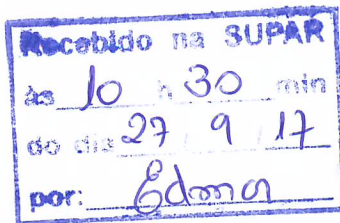 Recebido na SUPAR
às 10 h 30 min
do dia 27 / 9 / 17
por: Edmar